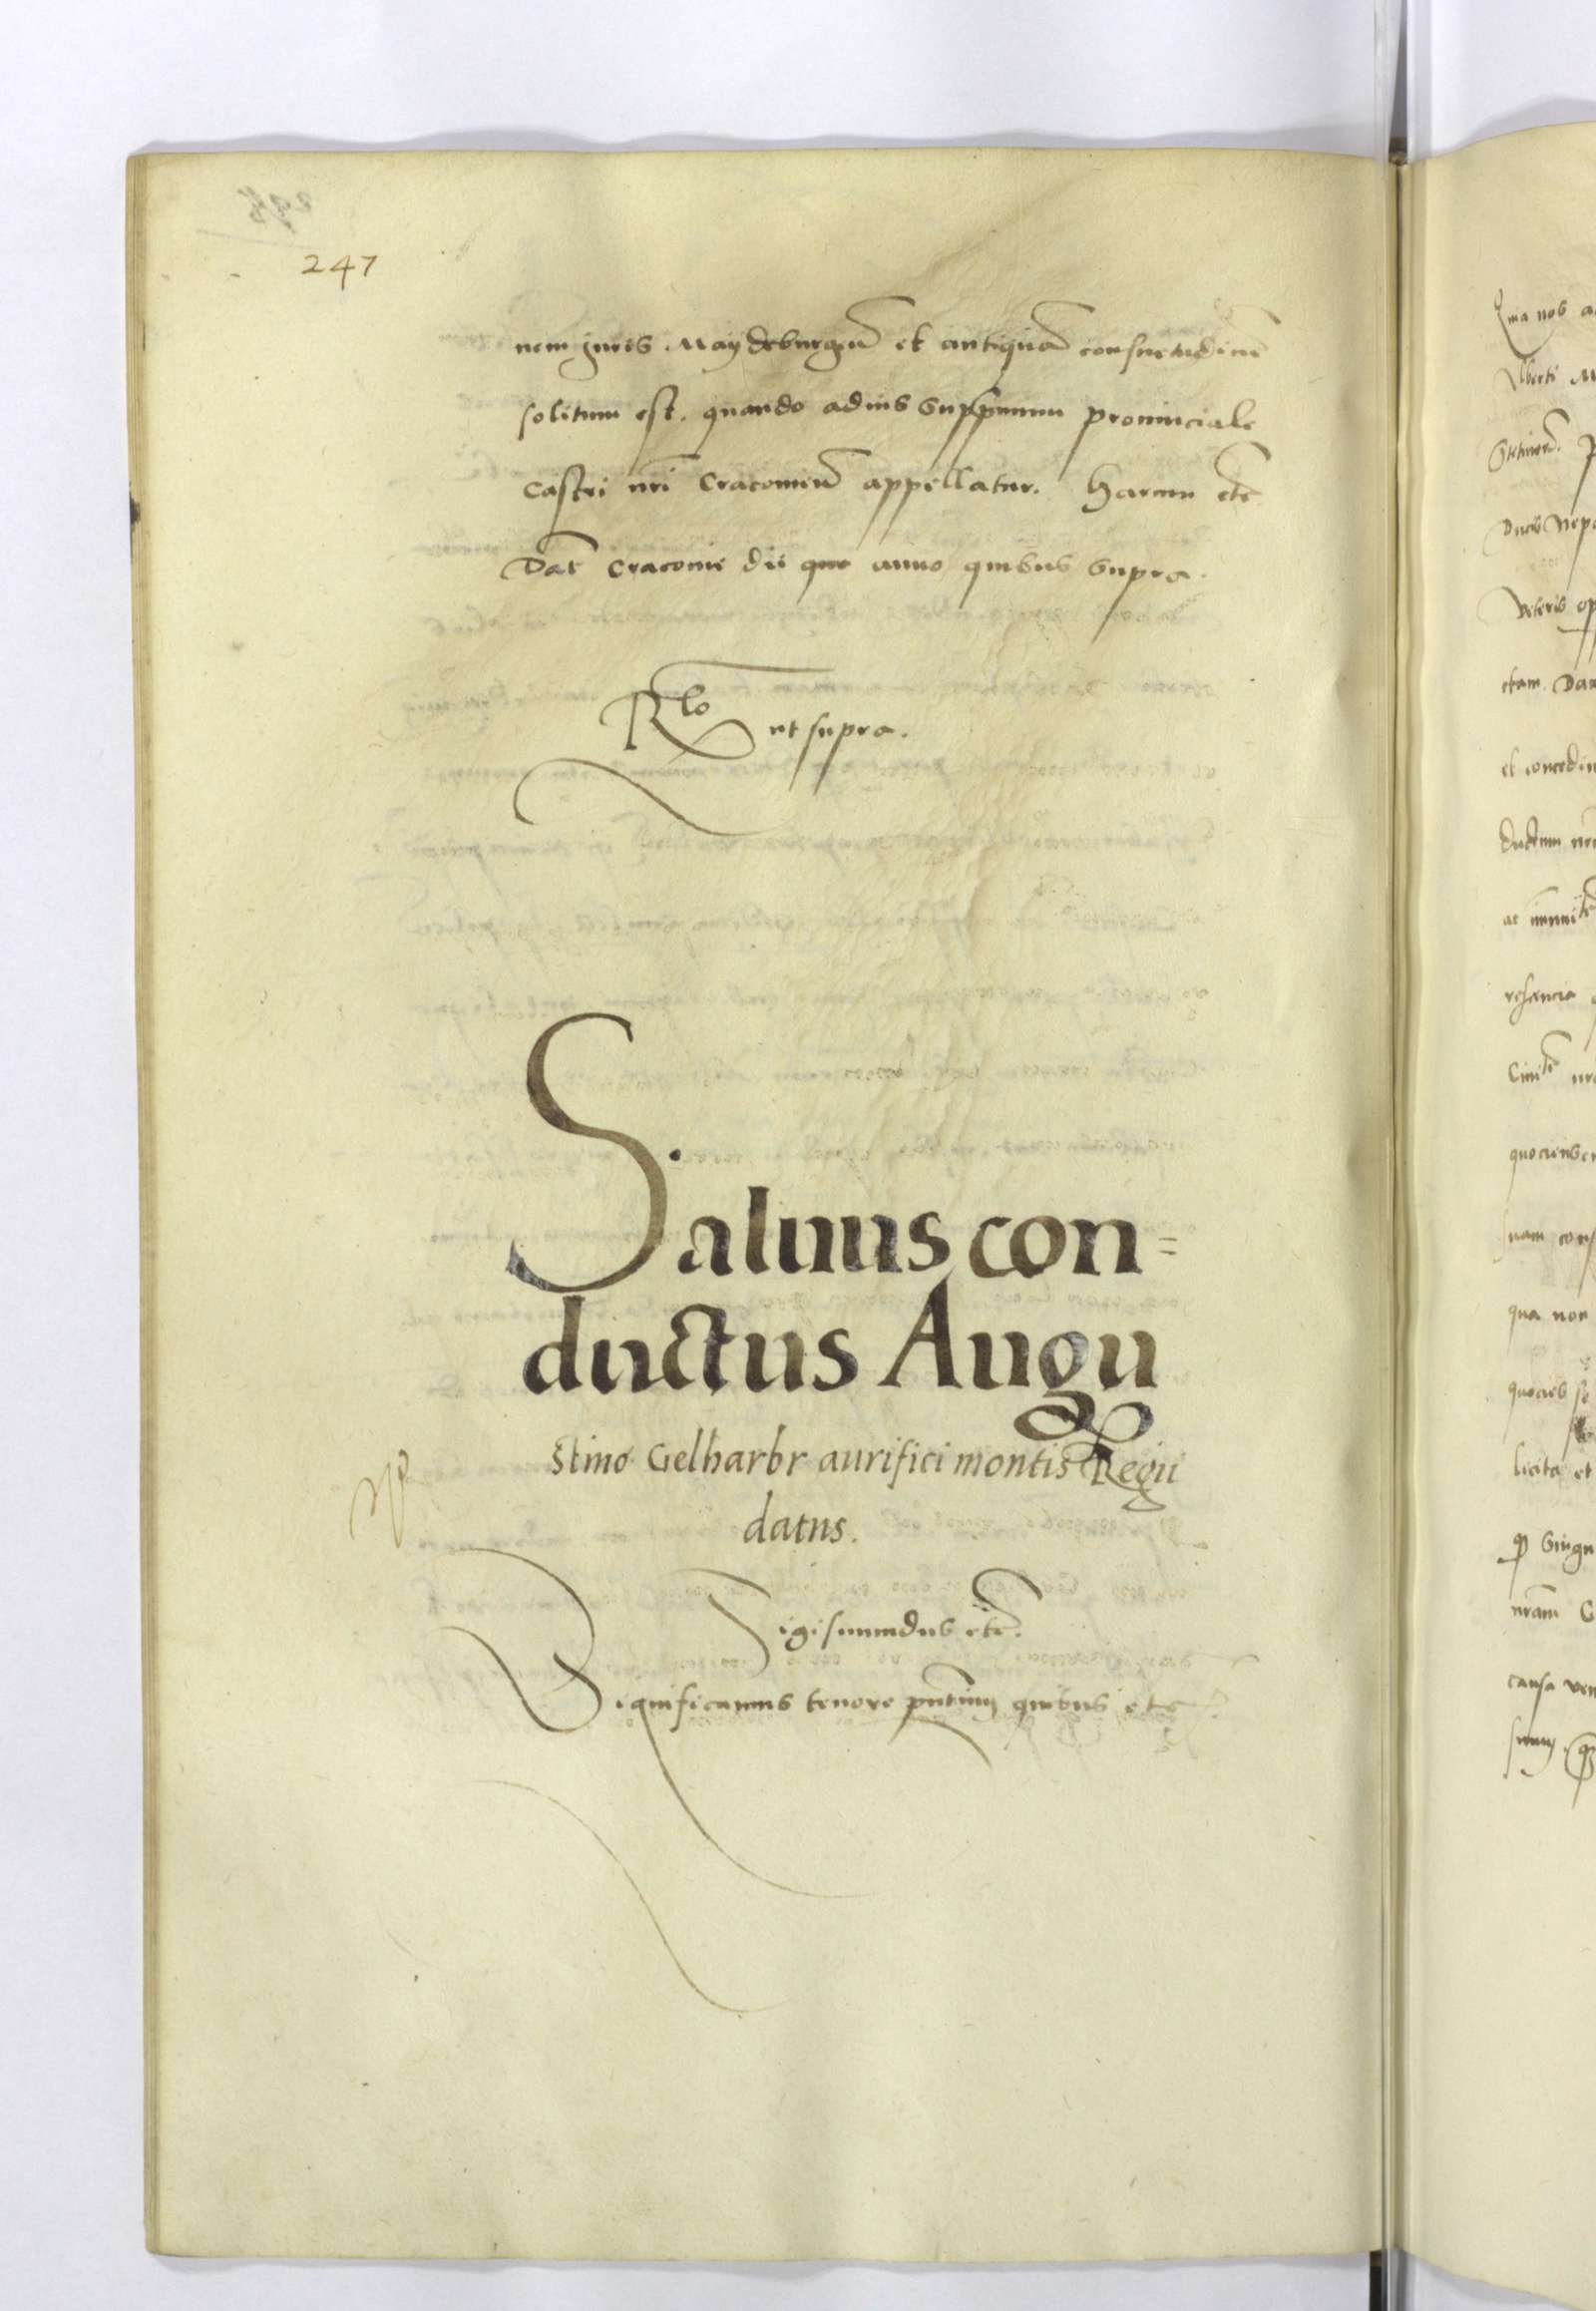 247
nem juris Maydeburgen et antiqua consuetudine
solitum est. quando ad ius suppremum provinciale
castri nri Cracovien appellatur. Harum etc
Dat Cracovie die quo anno quibus supra.
Rlo ut supra.
Saluus con=
ductus Augu
stino Gelharbr aurifici montis Regii
datus.
Sigismundus etc.
Significamus tenore pntium quibus etc
Quia nob
Alberti
ducis
veteris
etam. Dan
et concedim
ductum
ac
Civi
nam
qua non
quocies
licita et
nram
causa